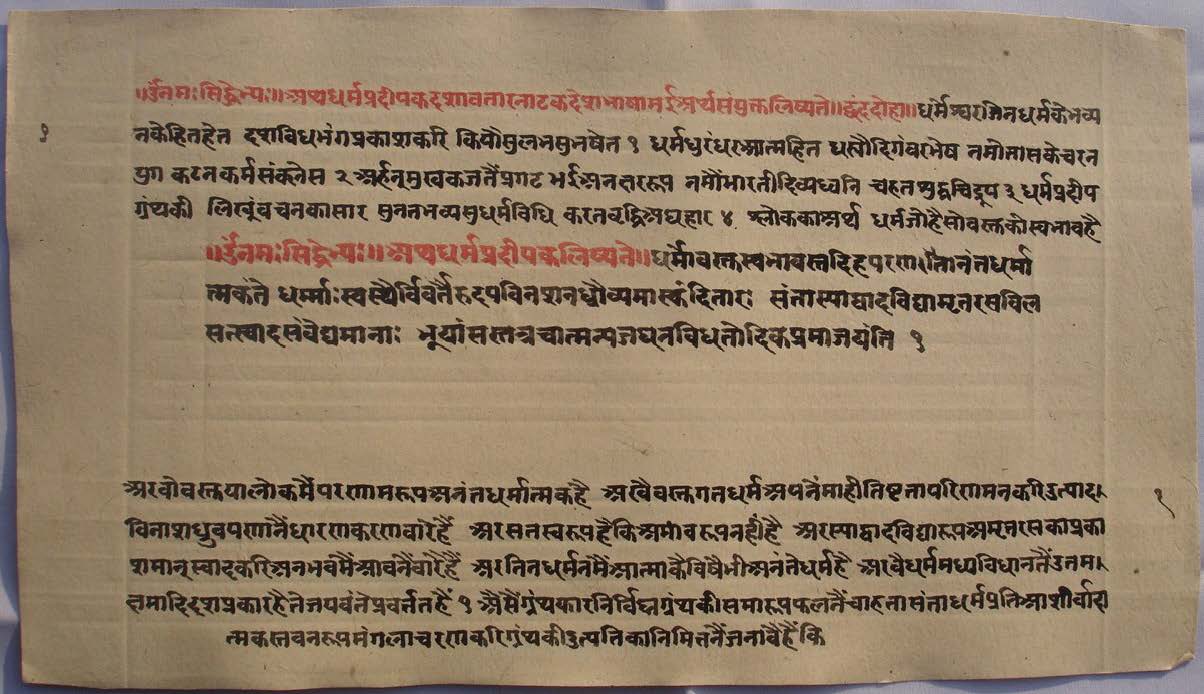 ॥ॐनमःसिद्धेभ्यः॥अथधर्मप्रदीपकदशावतारनाटकदेशभाषामईअर्थसंयुक्तलिष्यते॥छंददोहा॥धर्मेश्वरजिनधर्मकेभव्य
१
नकेहितहेत दशविधभंगप्रकाशकरि कियौसुलभसुभषेत १ धर्मधुरंधरआत्महित धर्यौदिगंवरभेष नमौतासकेचरन
युग कटतकर्मसंक्लेस २ अर्हन्मुखकजतैंप्रगट भईअनक्षररूप नमौंभारतीदिव्यध्वनि चहतशुद्धचिद्रूप ३ धर्मप्रदीप
ग्रंथकी लिखूंवचनकासार सुनतभव्यसुधर्मविधि करतवृद्धिअघहार ४ श्लोककाअर्थ धर्मजोहैसोवस्तकोस्वभावहै
॥ॐनमःसिद्धेभ्यः॥अथधर्मप्रदीपकलिष्यते॥धर्मोवस्तुस्वभावस्तदिह
त्मकंते धर्म्माः विनशनध्रौव्यमास्कंदितारः संतास्याद्वादविद्यामृतरसविल
सत्स्वादसंवेद्यमानाः भूयांस जयंति १
अरवोवस्तयालोकमैंपरणामरूपअनंतधर्मात्मकहै अरवैवस्तगतधर्मअपनेंमाहीतिष्टतापरिणमनकरिउत्पाद
१
विनाशध्रुवपणांनैंधारणकरणवारेहैं अरसतस्वरूपहैकिअभावरूपनहींहै अरस्याद्वादविद्यारूपअमृतरसकाप्रका
शमानस्वादकरिअनभवमैंआवनैंवारेहैं अरतिनधर्मनमैंआत्माकैविषैभीअनंतेधर्महै अरवैधर्ममध्यविधानतैंउतम
क्षमादिदशप्रकारहैतेजयवंतेप्रवर्त्ततहैं १ अैसैंग्रंथकारनिर्विघ्नग्रंथकीसमाप्तरूपफलनैंचाहतासंताधर्मप्रतिआशीर्वादा
त्मकस्तवनरूपमंगलाचरणकरिग्रंथकीउत्पतिकानिमित्तनैंजनावैहैंकि